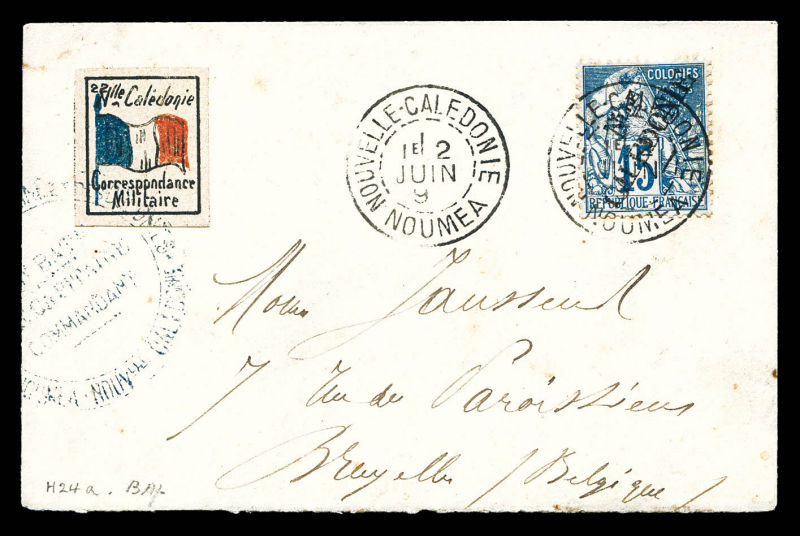 Nlle Calédonie
Correspondance
Militaire
NOUVELLE-CALEDONIE
1E 2
JUIN
9
NOUMEA
COLONIES
15
REPUBLIQUE-FRANÇAISE
NOUVELLE CALEDONIE
NOUMEA
CAPITAINE
COMMANDANT
NOUMEA · NOUVLE CALÉDONIE
Jausseud
7 Rue du Paroissiens
Bruxelles / Belgique /
H24a.